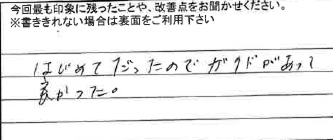 今回最も印象に残ったことや、改善点をお聞かせください。
※書ききれない場合は裏面をご利用下さい
はじめてだったのでガイドがあって
良かった。